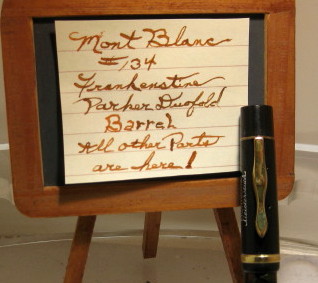 Mont Blanc
#134
Frankenstine
Parker Duofold
Barrel
All other Parts
are here!